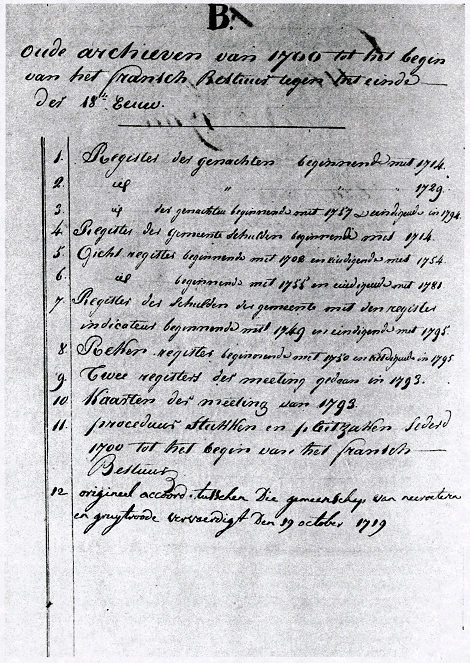 B.
Oude archieven van 1700 tot het begin
van het fransch Bestuur tegen het einde
der 18te Eeuw.
1. Register der genachten beginnende met 1714.
2. id " " 1729.
3. id der genachten beginnende met 1757 en eindigende in 1794.
4. Register der gemeente schulden beginnende met 1714.
5. Gicht register beginnende met 1708 en eindigende met 1754.
6. id beginnende met 1755 en eindigende met 1781
7. Register der schulden der gemeente met den register
indicateur beginnende met 1749 en eindigende met 1795.
8. Reken register beginnende met 1750 en eindigende in 1795
9. Twee registers der meeting gedaan in 1793.
10 Kaarten der meeting van 1793.
11. proceduur Stukken en pleitzaken sederd
1700 tot het begin van het fransch
Bestuur
12 origineel accoord tusschen Die gemeenschap van neeroeteren
en gruytroode vervoerdigt Den 19 october 1719